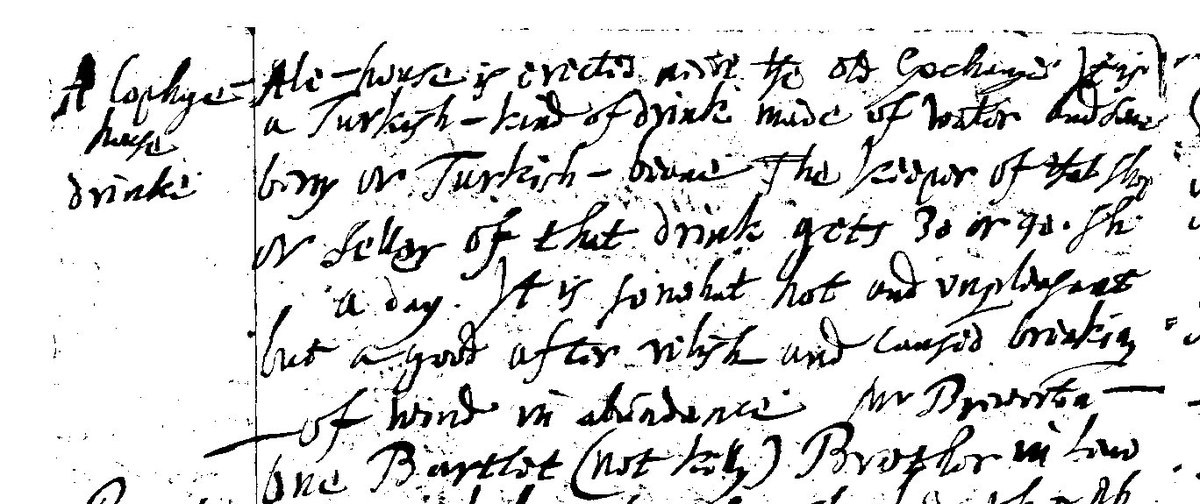 A Cophye house drinke
Ale-house is erected neere the old Exchange It is
a Turkish-kind of drink made of water and some
berry or Turkish-beane The keeper of that shop
or seller of that drink gets 30 or 40. sh
a day. It is somewhat hot and unpleasant
but a good after relish and caused breaking
of wind in abundance Mr Brereton
one Bartlet (not kelly) Brother in Law